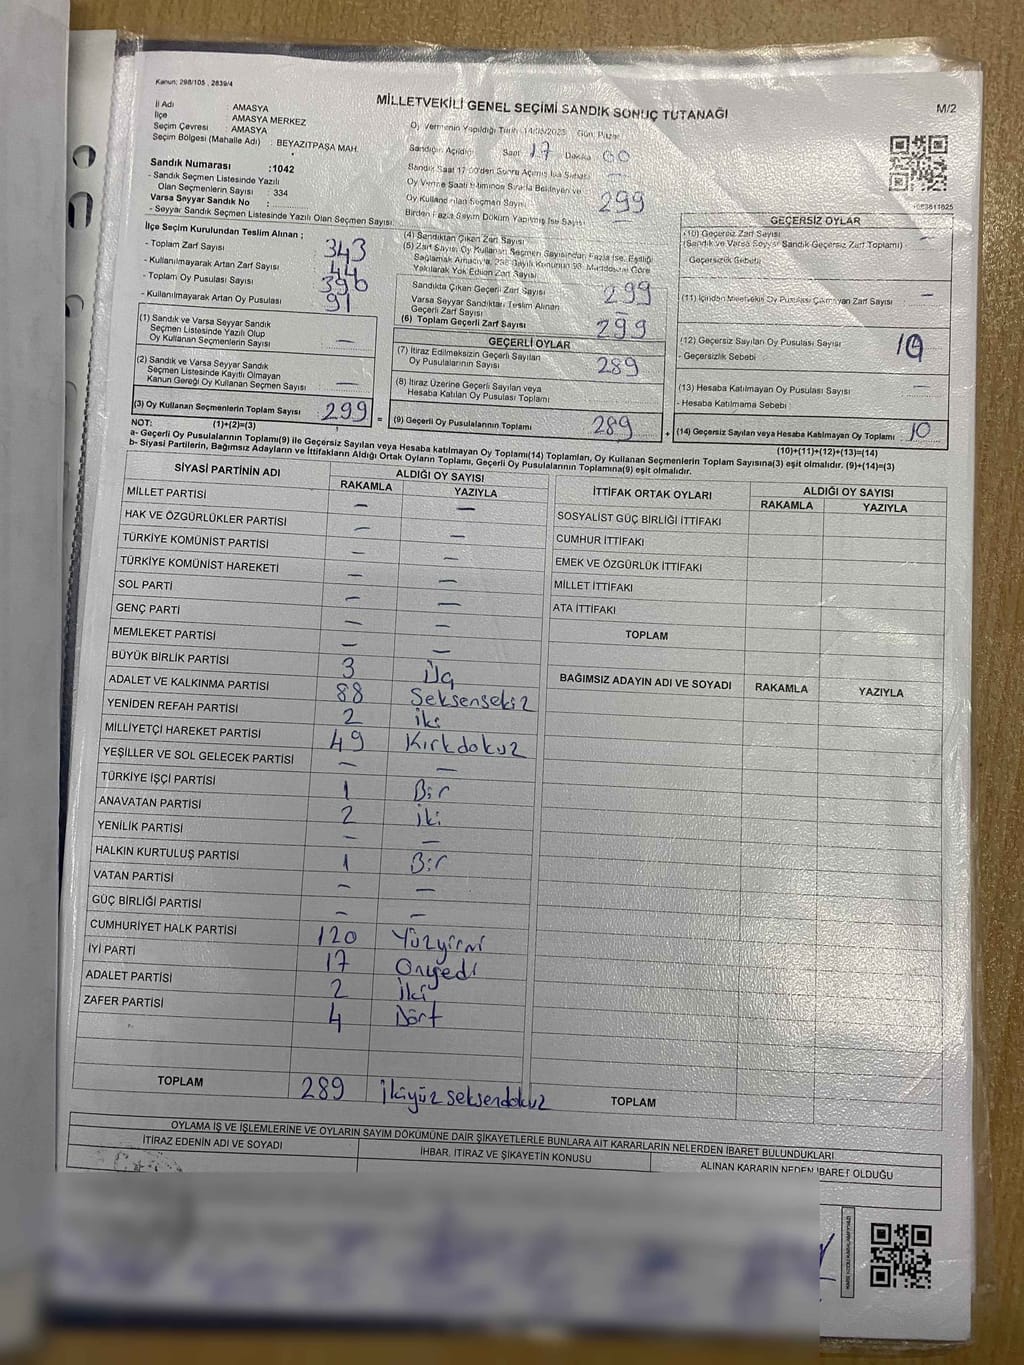 Kanun: 298/105 , 2839/4
MİLLETVEKİLİ GENEL SEÇİMİ SANDIK SONUÇ TUTANAĞI
M/2
İl Adı : AMASYA
İlçe : AMASYA MERKEZ
Seçim Çevresi : AMASYA
Seçim Bölgesi (Mahalle Adı) : BEYAZITPAŞA MAH.
Sandık Numarası :1042
- Sandık Seçmen Listesinde Yazılı
Olan Seçmenlerin Sayısı : 334
Varsa Seyyar Sandık No :
- Seyyar Sandık Seçmen Listesinde Yazılı Olan Seçmen Sayısı
Oy Vermenin Yapıldığı Tarih 14/05/2023 Gün: Pazar
Sandığın Açıldığı Saat 17 Dakika 00
Sandık Saat 17:00'den Sonra Açılmış İse Sebebi —
Oy Verme Saati Bitiminde Sırada Bekleyen ve
Oy Kullandırılan Seçmen Sayısı 299
Birden Fazla Sayım Döküm Yapılmış İse Sayısı
İlçe Seçim Kurulundan Teslim Alınan ;
- Toplam Zarf Sayısı 343
- Kullanılmayarak Artan Zarf Sayısı 44
- Toplam Oy Pusulası Sayısı 390
- Kullanılmayarak Artan Oy Pusulası 91
(1) Sandık ve Varsa Seyyar Sandık
Seçmen Listesinde Yazılı Olup
Oy Kullanan Seçmenlerin Sayısı —
(2) Sandık ve Varsa Seyyar Sandık
Seçmen Listesinde Kayıtlı Olmayan
Kanun Gereği Oy Kullanan Seçmen Sayısı —
(3) Oy Kullanan Seçmenlerin Toplam Sayısı 299 =
(4) Sandıktan Çıkan Zarf Sayısı
(5) Zarf Sayısı Oy Kullanan Seçmen Sayısından Fazla ise, Eşitliği
Sağlamak Amacıyla, 298 Sayılı Kanunun 98. Maddesine Göre
Yakılarak Yok Edilen Zarf Sayısı
Sandıkta Çıkan Geçerli Zarf Sayısı 299
Varsa Seyyar Sandıktan Teslim Alınan
Geçerli Zarf Sayısı —
(6) Toplam Geçerli Zarf Sayısı 299
GEÇERLİ OYLAR
(7) İtiraz Edilmeksizin Geçerli Sayılan
Oy Pusulalarının Sayısı 289
(8) İtiraz Üzerine Geçerli Sayılan veya
Hesaba Katılan Oy Pusulası Toplamı
(9) Geçerli Oy Pusulalarının Toplamı 289 +
GEÇERSİZ OYLAR
(10) Geçersiz Zarf Sayısı
(Sandık ve Varsa Seyyar Sandık Geçersiz Zarf Toplamı) —
- Geçersizlik Sebebi
(11) İçinden Milletvekili Oy Pusulası Çıkmayan Zarf Sayısı —
(12) Geçersiz Sayılan Oy Pusulası Sayısı 10
- Geçersizlik Sebebi
(13) Hesaba Katılmayan Oy Pusulası Sayısı —
- Hesaba Katılmama Sebebi
(14) Geçersiz Sayılan veya Hesaba Katılmayan Oy Toplamı 10
NOT: (1)+(2)=(3)
(10)+(11)+(12)+(13)=(14)
a- Geçerli Oy Pusulalarının Toplamı(9) ile Geçersiz Sayılan veya Hesaba katılmayan Oy Toplamı(14) Toplamları, Oy Kullanan Seçmenlerin Toplam Sayısına(3) eşit olmalıdır. (9)+(14)=(3)
b- Siyasi Partilerin, Bağımsız Adayların ve İttifakların Aldığı Ortak Oyların Toplamı, Geçerli Oy Pusulalarının Toplamına(9) eşit olmalıdır.
SİYASİ PARTİNİN ADI ALDIĞI OY SAYISI
RAKAMLA YAZIYLA
MİLLET PARTİSİ — —
HAK VE ÖZGÜRLÜKLER PARTİSİ — —
TÜRKİYE KOMÜNİST PARTİSİ — —
TÜRKİYE KOMÜNİST HAREKETİ — —
SOL PARTİ — —
GENÇ PARTİ — —
MEMLEKET PARTİSİ — —
BÜYÜK BİRLİK PARTİSİ 3 Üç
ADALET VE KALKINMA PARTİSİ 88 Seksensekiz
YENİDEN REFAH PARTİSİ 2 İki
MİLLİYETÇİ HAREKET PARTİSİ 49 Kırkdokuz
YEŞİLLER VE SOL GELECEK PARTİSİ — —
TÜRKİYE İŞÇİ PARTİSİ 1 Bir
ANAVATAN PARTİSİ 2 İki
YENİLİK PARTİSİ — —
HALKIN KURTULUŞ PARTİSİ 1 Bir
VATAN PARTİSİ — —
GÜÇ BİRLİĞİ PARTİSİ — —
CUMHURİYET HALK PARTİSİ 120 Yüzyirmi
İYİ PARTİ 17 Onyedi
ADALET PARTİSİ 2 İki
ZAFER PARTİSİ 4 Dört
TOPLAM 289 İkiyüzseksendokuz
İTTİFAK ORTAK OYLARI ALDIĞI OY SAYISI
RAKAMLA YAZIYLA
SOSYALİST GÜÇ BİRLİĞİ İTTİFAKI
CUMHUR İTTİFAKI
EMEK VE ÖZGÜRLÜK İTTİFAKI
MİLLET İTTİFAKI
ATA İTTİFAKI
TOPLAM
BAĞIMSIZ ADAYIN ADI VE SOYADI RAKAMLA YAZIYLA
TOPLAM
OYLAMA İŞ VE İŞLEMLERİNE VE OYLARIN SAYIM DÖKÜMÜNE DAİR ŞİKAYETLERLE BUNLARA AİT KARARLARIN NELERDEN İBARET BULUNDUKLARI
İTİRAZ EDENİN ADI VE SOYADI
İHBAR, İTİRAZ VE ŞİKAYETİN KONUSU
ALINAN KARARIN NEDEN İBARET OLDUĞU